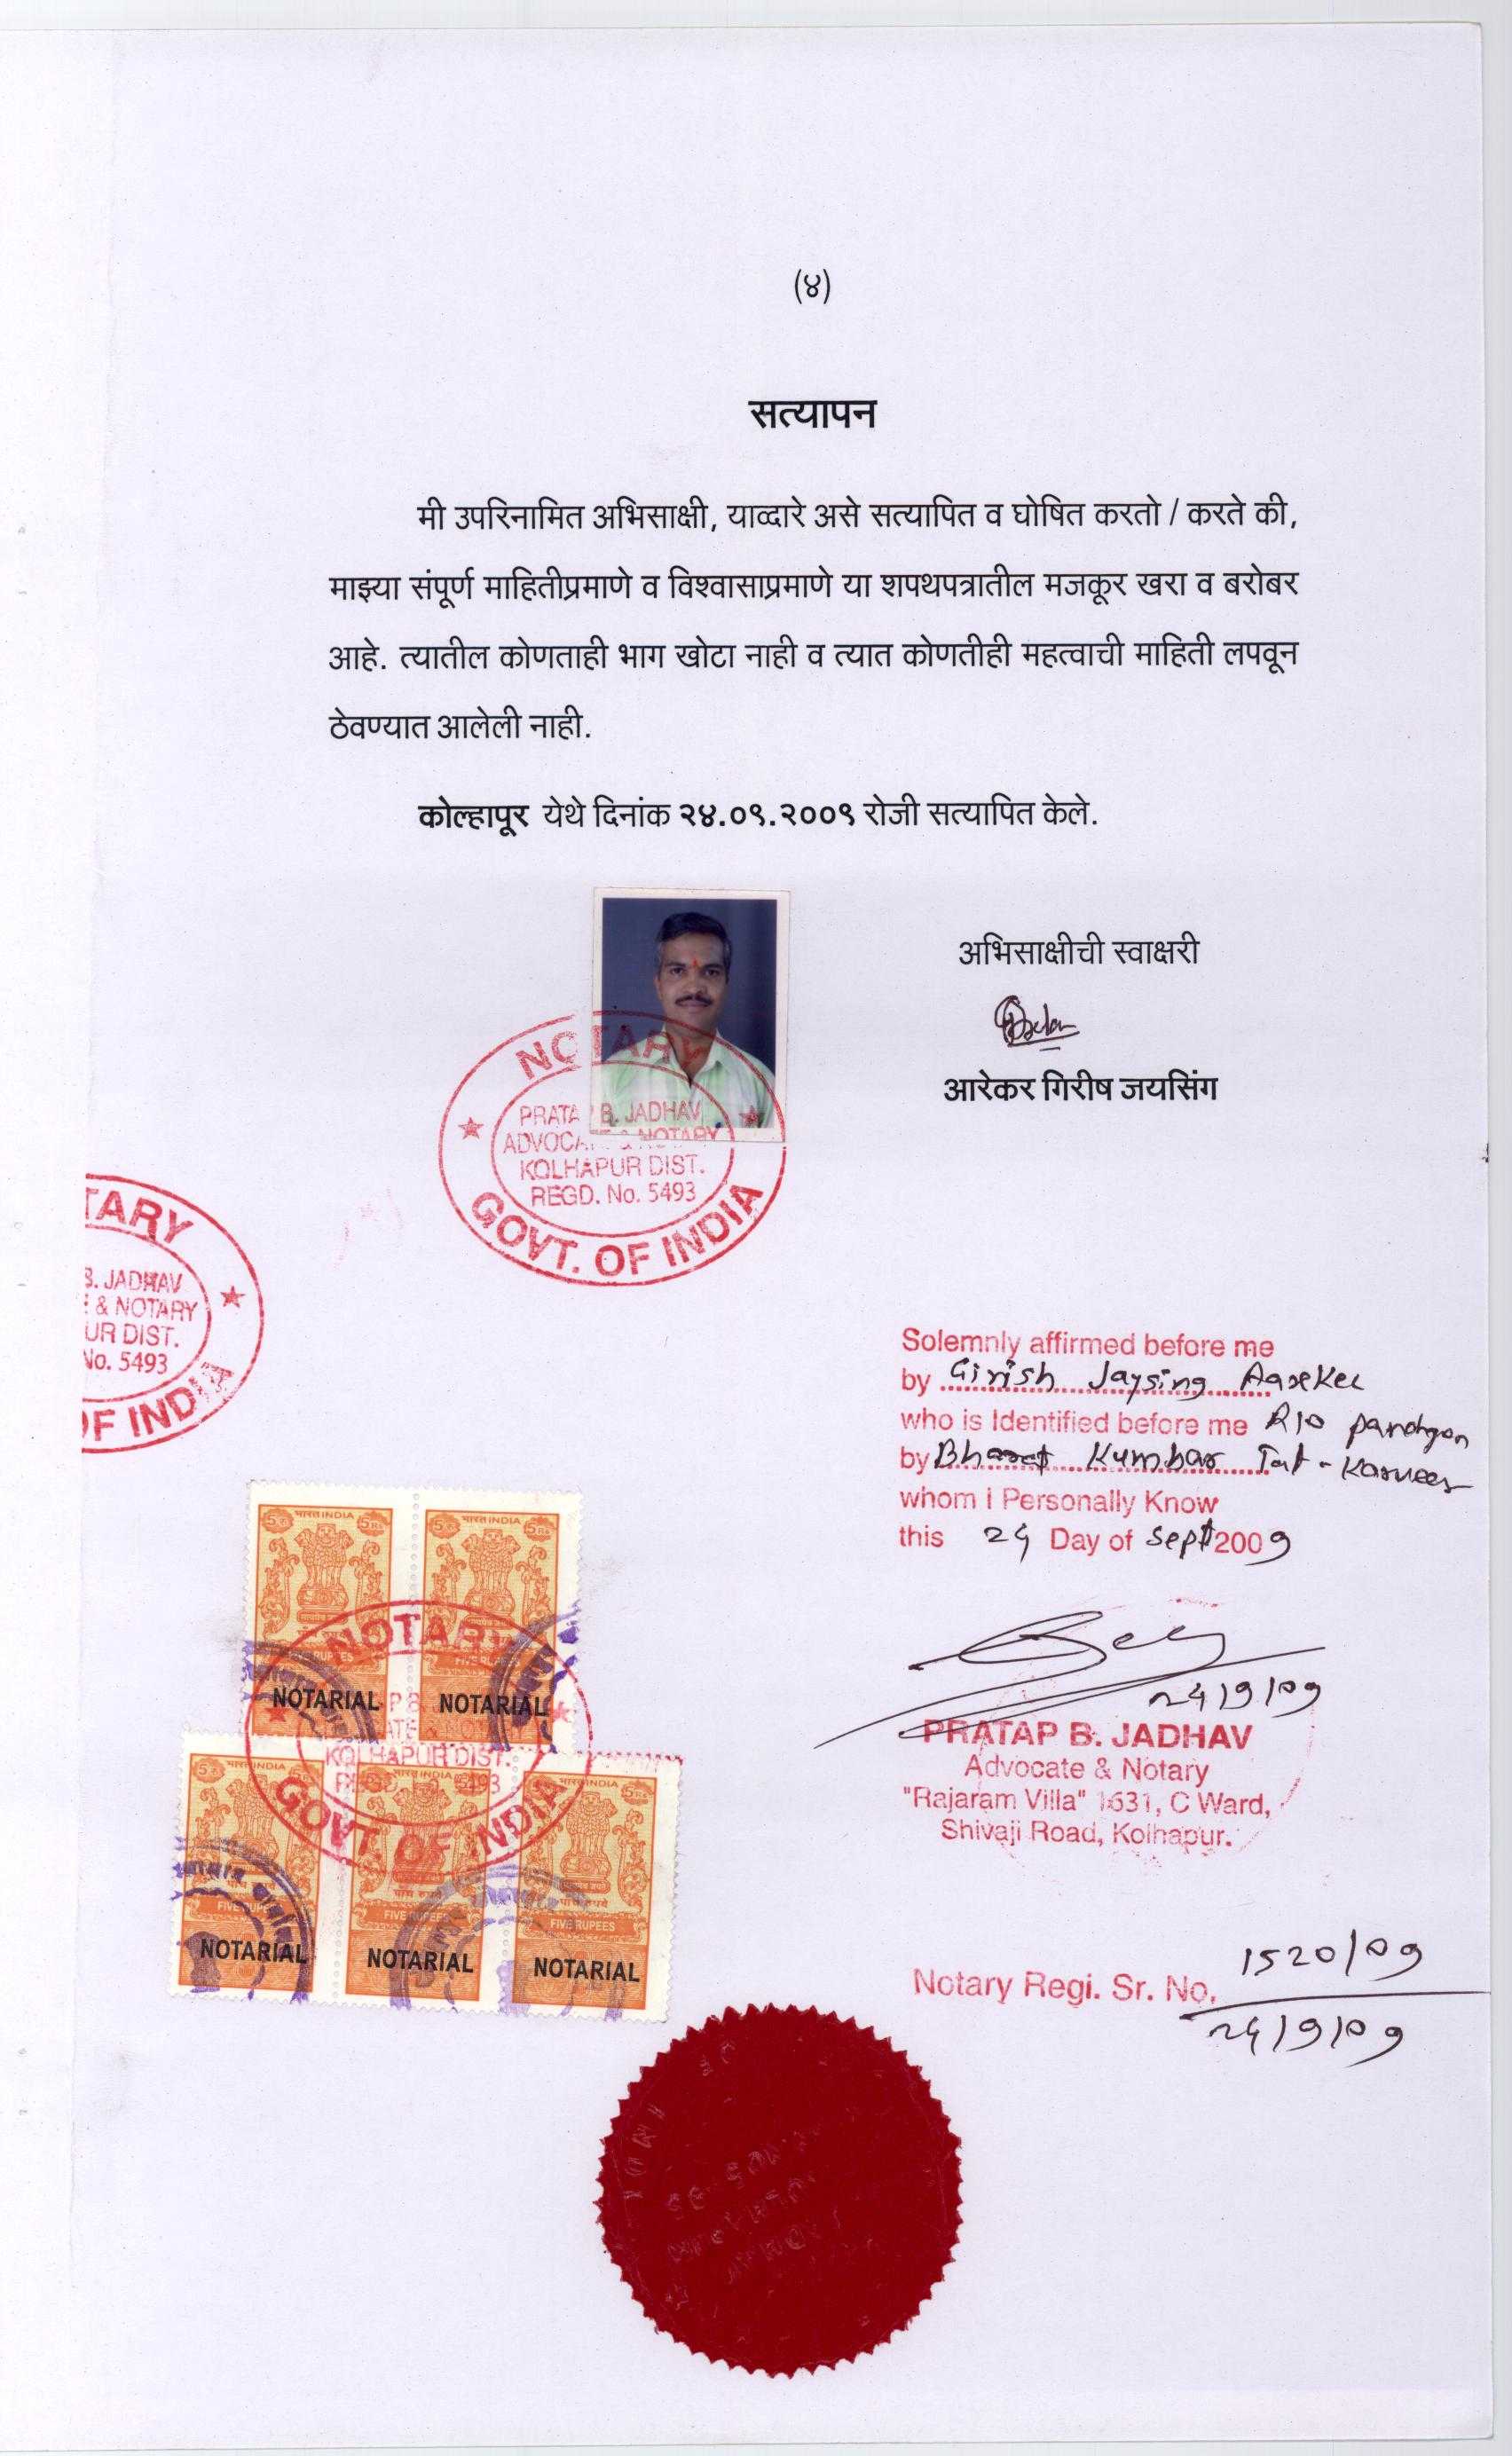 (४)
सत्यापन
मी उपरिनामित अभिसाक्षी, याव्दारे असे सत्यापित व घोषित करतो / करते की,
माझ्या संपूर्ण माहितीप्रमाणे व विश्वासाप्रमाणे या शपथपत्रातील मजकूर खरा व बरोबर
आहे. त्यातील कोणताही भाग खोटा नाही व त्यात कोणतीही महत्वाची माहिती लपवून
ठेवण्यात आलेली नाही.
कोल्हापूर येथे दिनांक २४.०९.२००९ रोजी सत्यापित केले.
अभिसाक्षीची स्वाक्षरी
आरेकर गिरीष जयसिंग
NOTARY
PRATAP B. JADHAV
ADVOCATE & NOTARY
KOLHAPUR DIST.
REGD. No. 5493
GOVT. OF INDIA
TARY
B. JADHAV
& NOTARY
UR DIST.
No. 5493
OF INDIA
Solemnly affirmed before me
by Girish Jaysing Aarekar
who is Identified before me R/o
by Bharat Kumbar Tal - Karveer
whom I Personally Know
this 24 Day of Sept 2009
24/9/09
PRATAP B. JADHAV
Advocate & Notary
"Rajaram Villa" 1631, C Ward,
Shivaji Road, Kolhapur.
Notary Regi. Sr. No. 1520/09
24/9/09
भारत INDIA भारत INDIA
NOTARY
FIVE RUPEES
NOTARIAL NOTARIAL
KOLHAPUR DIST.
GOVT. OF INDIA
भारत INDIA
FIVE RUPEES FIVE RUPEES FIVE RUPEES
NOTARIAL NOTARIAL NOTARIAL